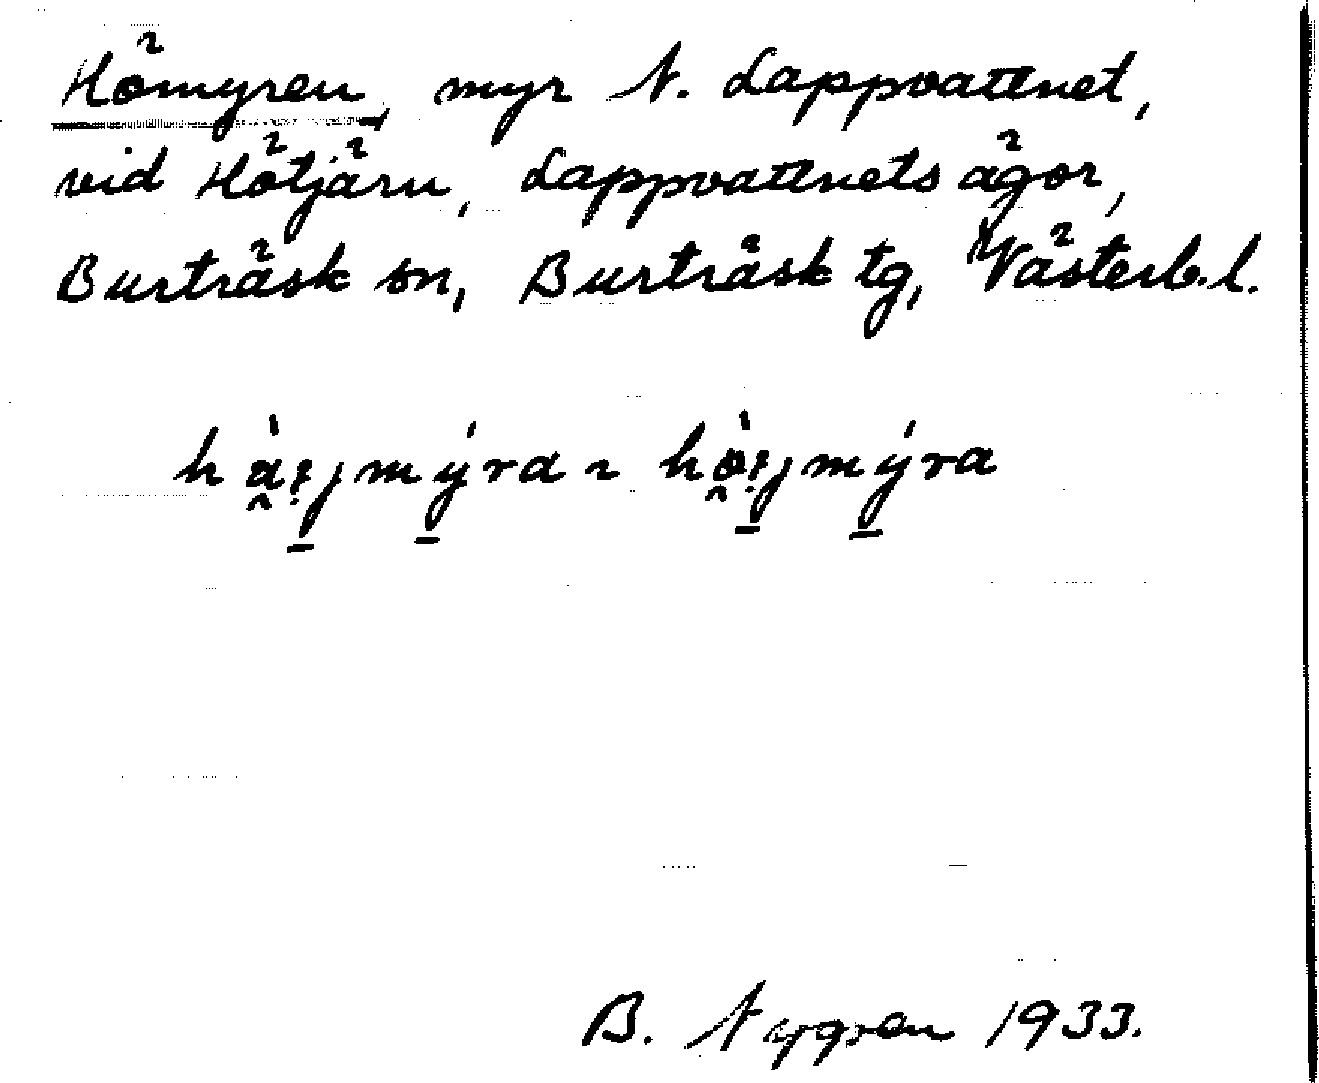 Hömyren, myr N. Lappvattnet,
vid Hötjärn, Lappvattnets ägor,
Burträsk sn, Burträsk tg, Västerb.l.
B. Nygren 1933.